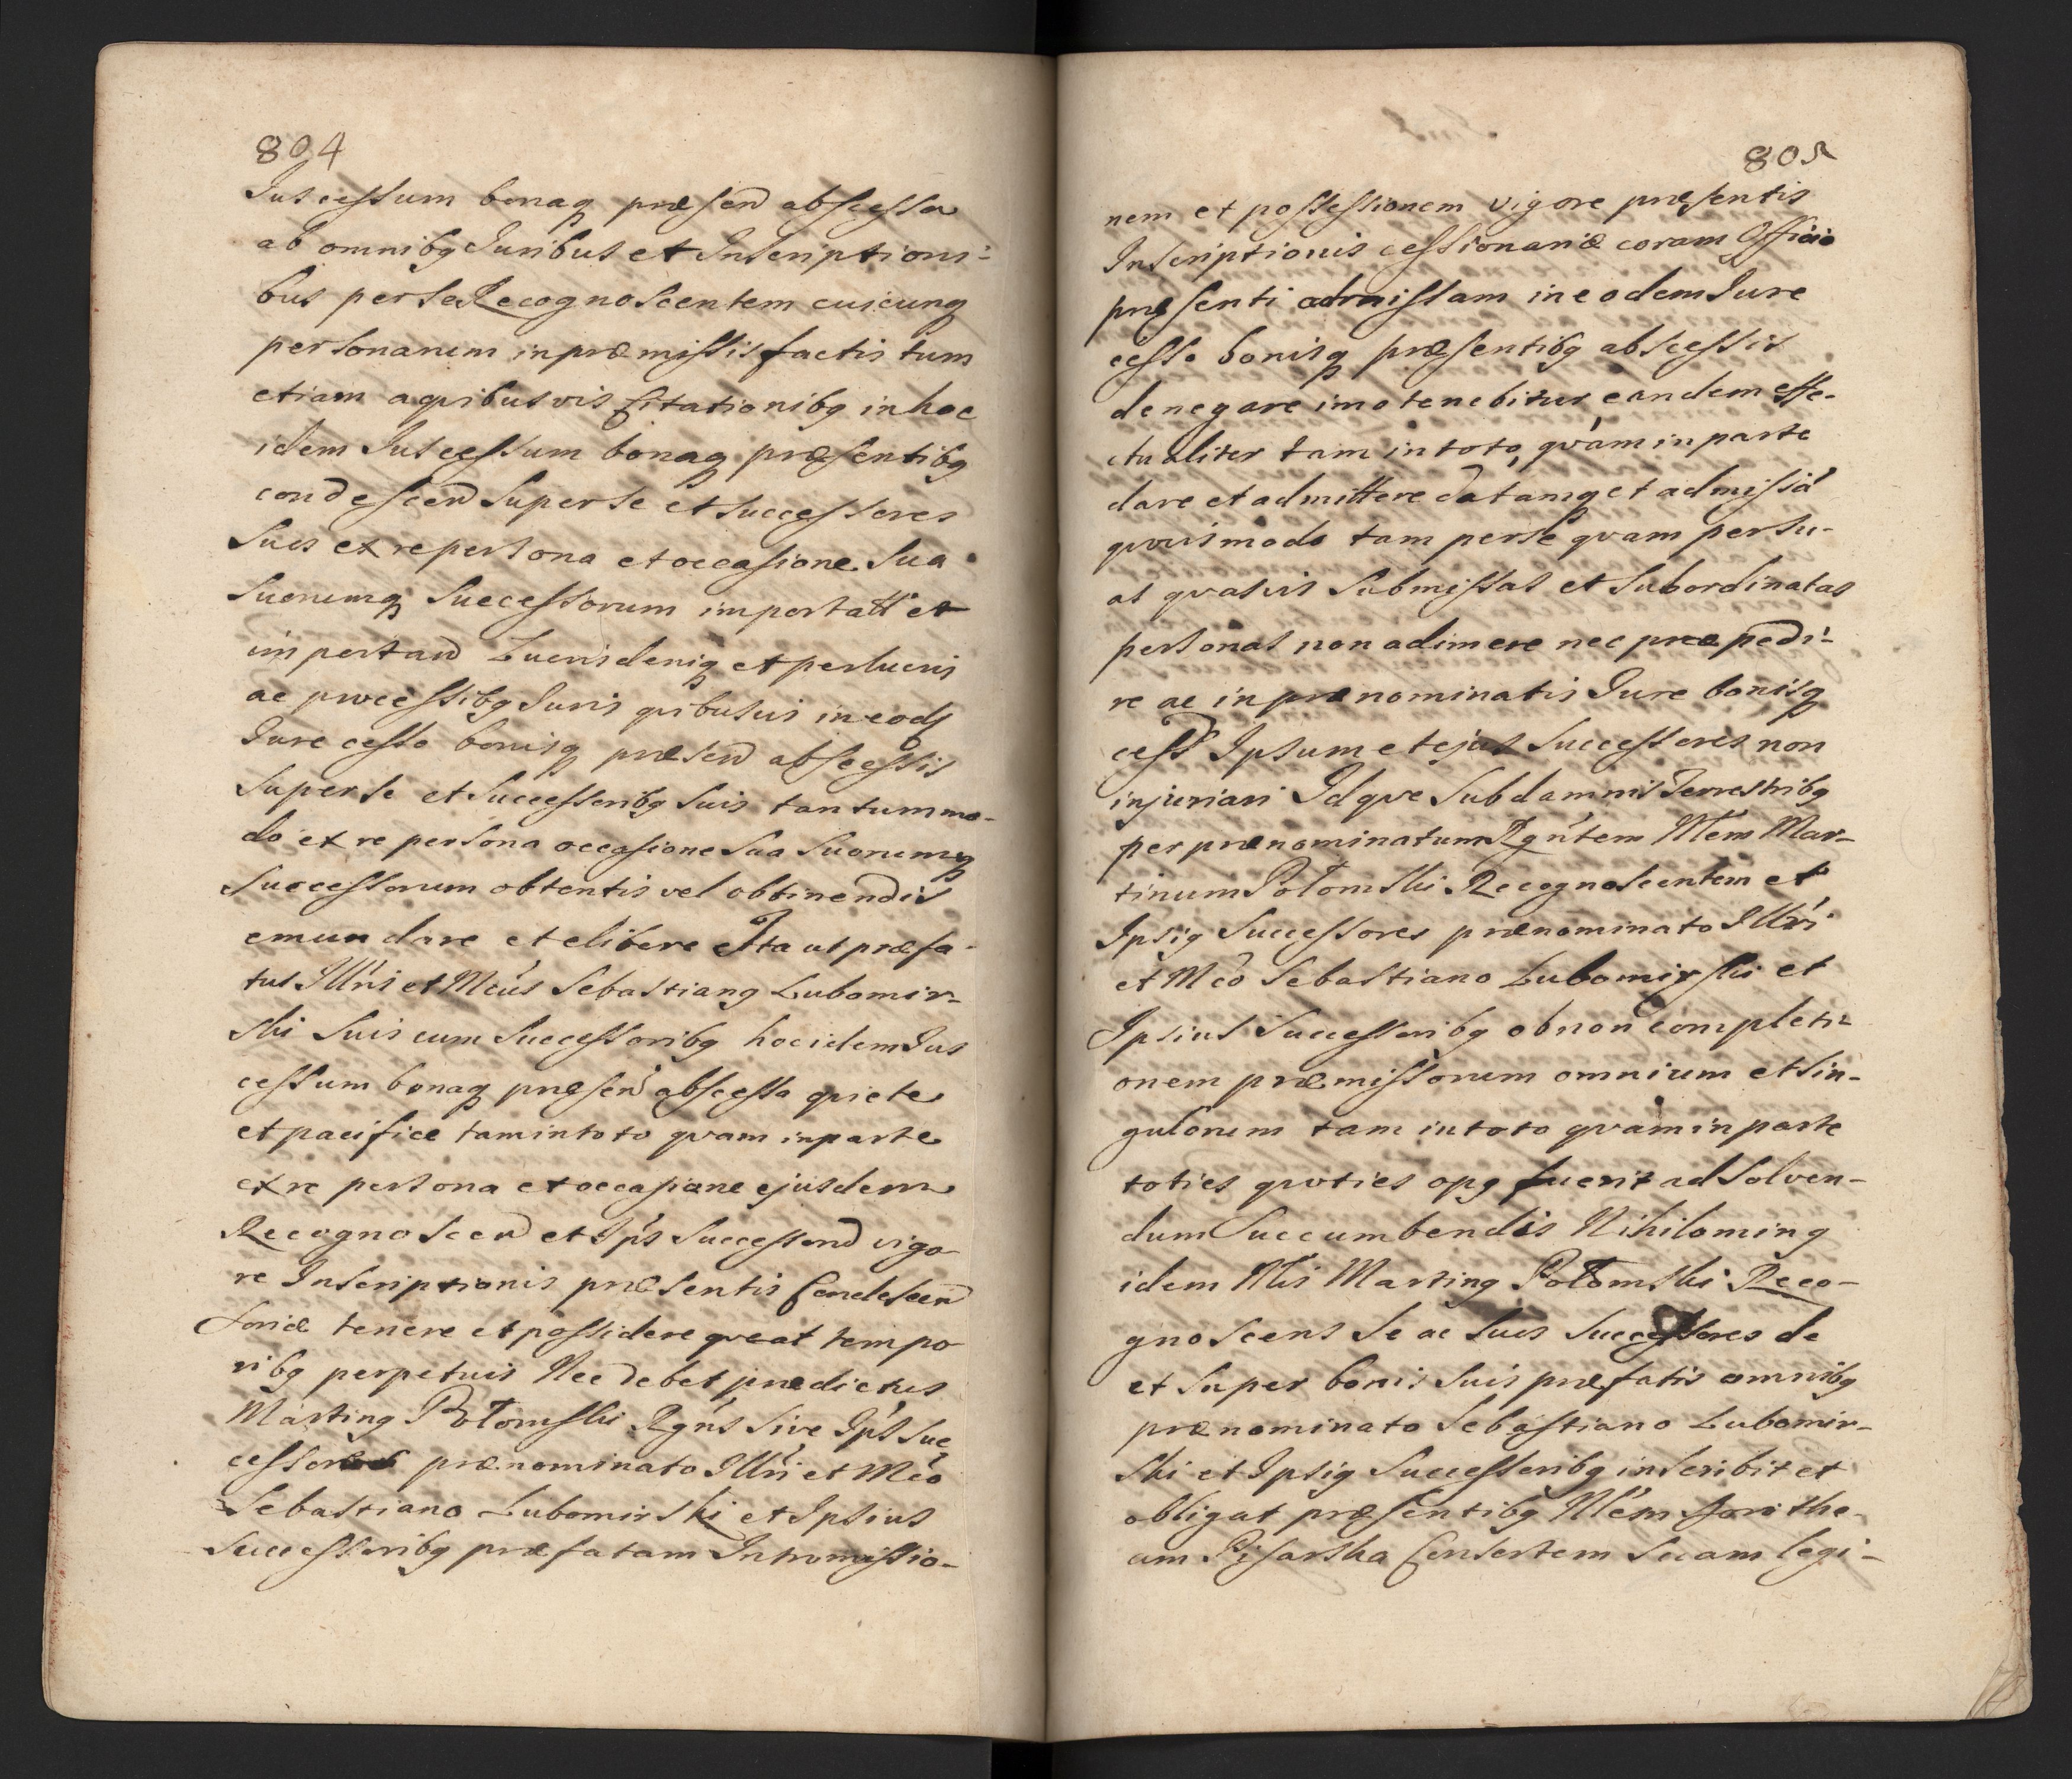 804
Jus cessum bonaq præsen abscessa
ab omnibq Juribus et Inscriptioni-
bus per se Recognoscentem cuicunq
personarum in præmissis factis tum
etiam a qvibusvis Citationibq in hoc
idem Jus cessum bonaq præsentibq
condescen super se et successores
suos ex re persona et occasione sua
suorumq Successorum importatt et
importan Lucris deniq et perlucris
ac processibq Juris qvibusvis in eodj
Jure cesso bonisq præsen abscessis
super se et Successoribq suis tantummo-
do ex re persona occasione sua suorumq
Successorum obtentis vel obtinendis
emundare et elibere Ita ut præfa-
tus Illris et Mcus Sebastianq Lubomir-
ski suis cum Successoribq hoc idem Jus
cessum bonaq præsen abscessa qviete
et pacifice tam in toto qvam in parte
ex re persona et occasione ejusdem
Recognoscen et Ips Successorum vigo-
re Inscriptionis præsentis Condescen
soriæ tenere et possidere qveat tempo
ribq perpetuis Nec debet prædictus
Martinq Potomski Rgns sive Ips Suc
cessores prænominato Illri et Mco
Sebastiano Lubomirski et Ipsius
Successoribq præfatam Intromissio-
805
nem et possessionem vigore præsentis
Inscriptionis cessionariæ coram Officio
præsenti admissam in eodem Jure
cesso bonisq præsentibq abscessis
denegare imo tenebitur eandem effe-
ctualiter tam in toto, qvam in parte
dare et admittere datamq et admissa
qvovismodo tam per se qvam per su-
as qvasvis Submissas et Subordinatas
personas non adimere nec præpedi-
re ac in prænominatis Jure bonisq
cess Ipsum et ejus Successores non
injuriari Idqve Sub damnis Terrestribq
per prænominatum Rgntem Nlem Mar-
tinum Potomski Recognoscentem et
Ipsiq Successores prænominato Illri
et Mco Sebastiano Lubomirski et
Ipsius Successoribq ob non completi-
onem præmissorum omnium et sin-
gulorum tam in toto qvam in parte
toties qvoties opq fuerit ad Solven-
dum Succumbendis Nihilominq
idem Nlis Martinq Potomski Reco-
gnoscens se ac suos Successores de
et super bonis suis præfatis omnibq
prænominato Sebastiano Lubomir-
ski et Ipsiq Successoribq inscribit et
obligat præsentibq Nlem Dorothe-
am Pisarska Consortem suam legi-